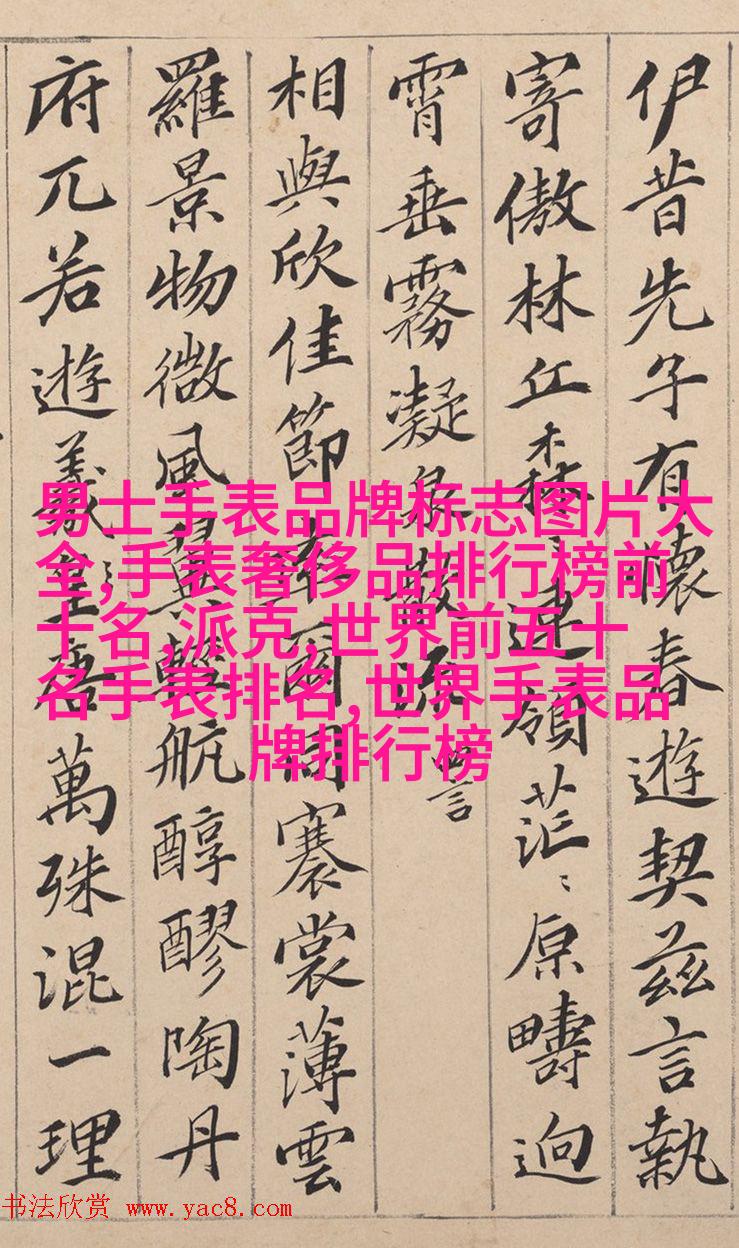 伊昔先子有懷春遊契茲言執
寄傲林丘森〻連嶺茫〻原疇迥
霄垂霧凝泉散流 四言
相與欣佳節率爾同褰裳薄雲
羅景物微風翼輕航醇醪陶丹
府兀若遊羲皇唐萬殊混一理
男士手表品牌标志图片大
全,手表奢侈品排行榜前
十名,派克,世界前五十
名手表排名,世界手表品
牌排行榜
书法欣赏 www.yac8.com